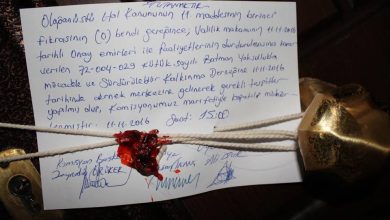 TUTANAKTIR
Olağanüstü Hal Kanununun 11. maddesinin birinci
fıkrasının (O) bendi gereğince, Valilik makamının 11.11.2016
tarihli Onay emirleri ile faaliyetlerinin durdurulmasına karar
verilen 72-004-029 kütük sayılı Batman Yoksullukla
Mücadele ve Sürdürülebilir Kalkınma Derneğine 11.11.2016
tarihinde dernek merkezine gelinerek gerekli tespitler
yapılmış olup, Komisyonumuz marifetiyle kapatılıp
11.11.2016 Saat: 15:00
Komisyon
Üye